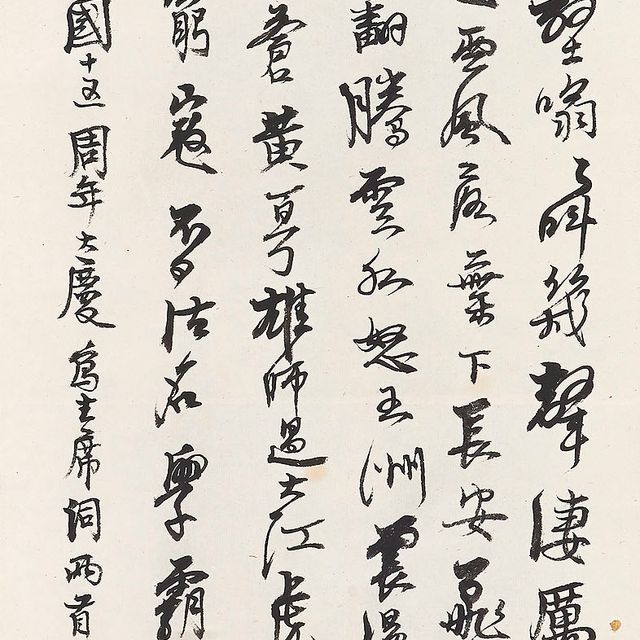 壁嗡〻叫幾聲淒厲
西風落葉下長安飛
翻騰雲水怒五洲震
蒼黃百万雄師過大江虎
窮寇不可沽名學霸
國十五周年大慶寫主席詞兩首